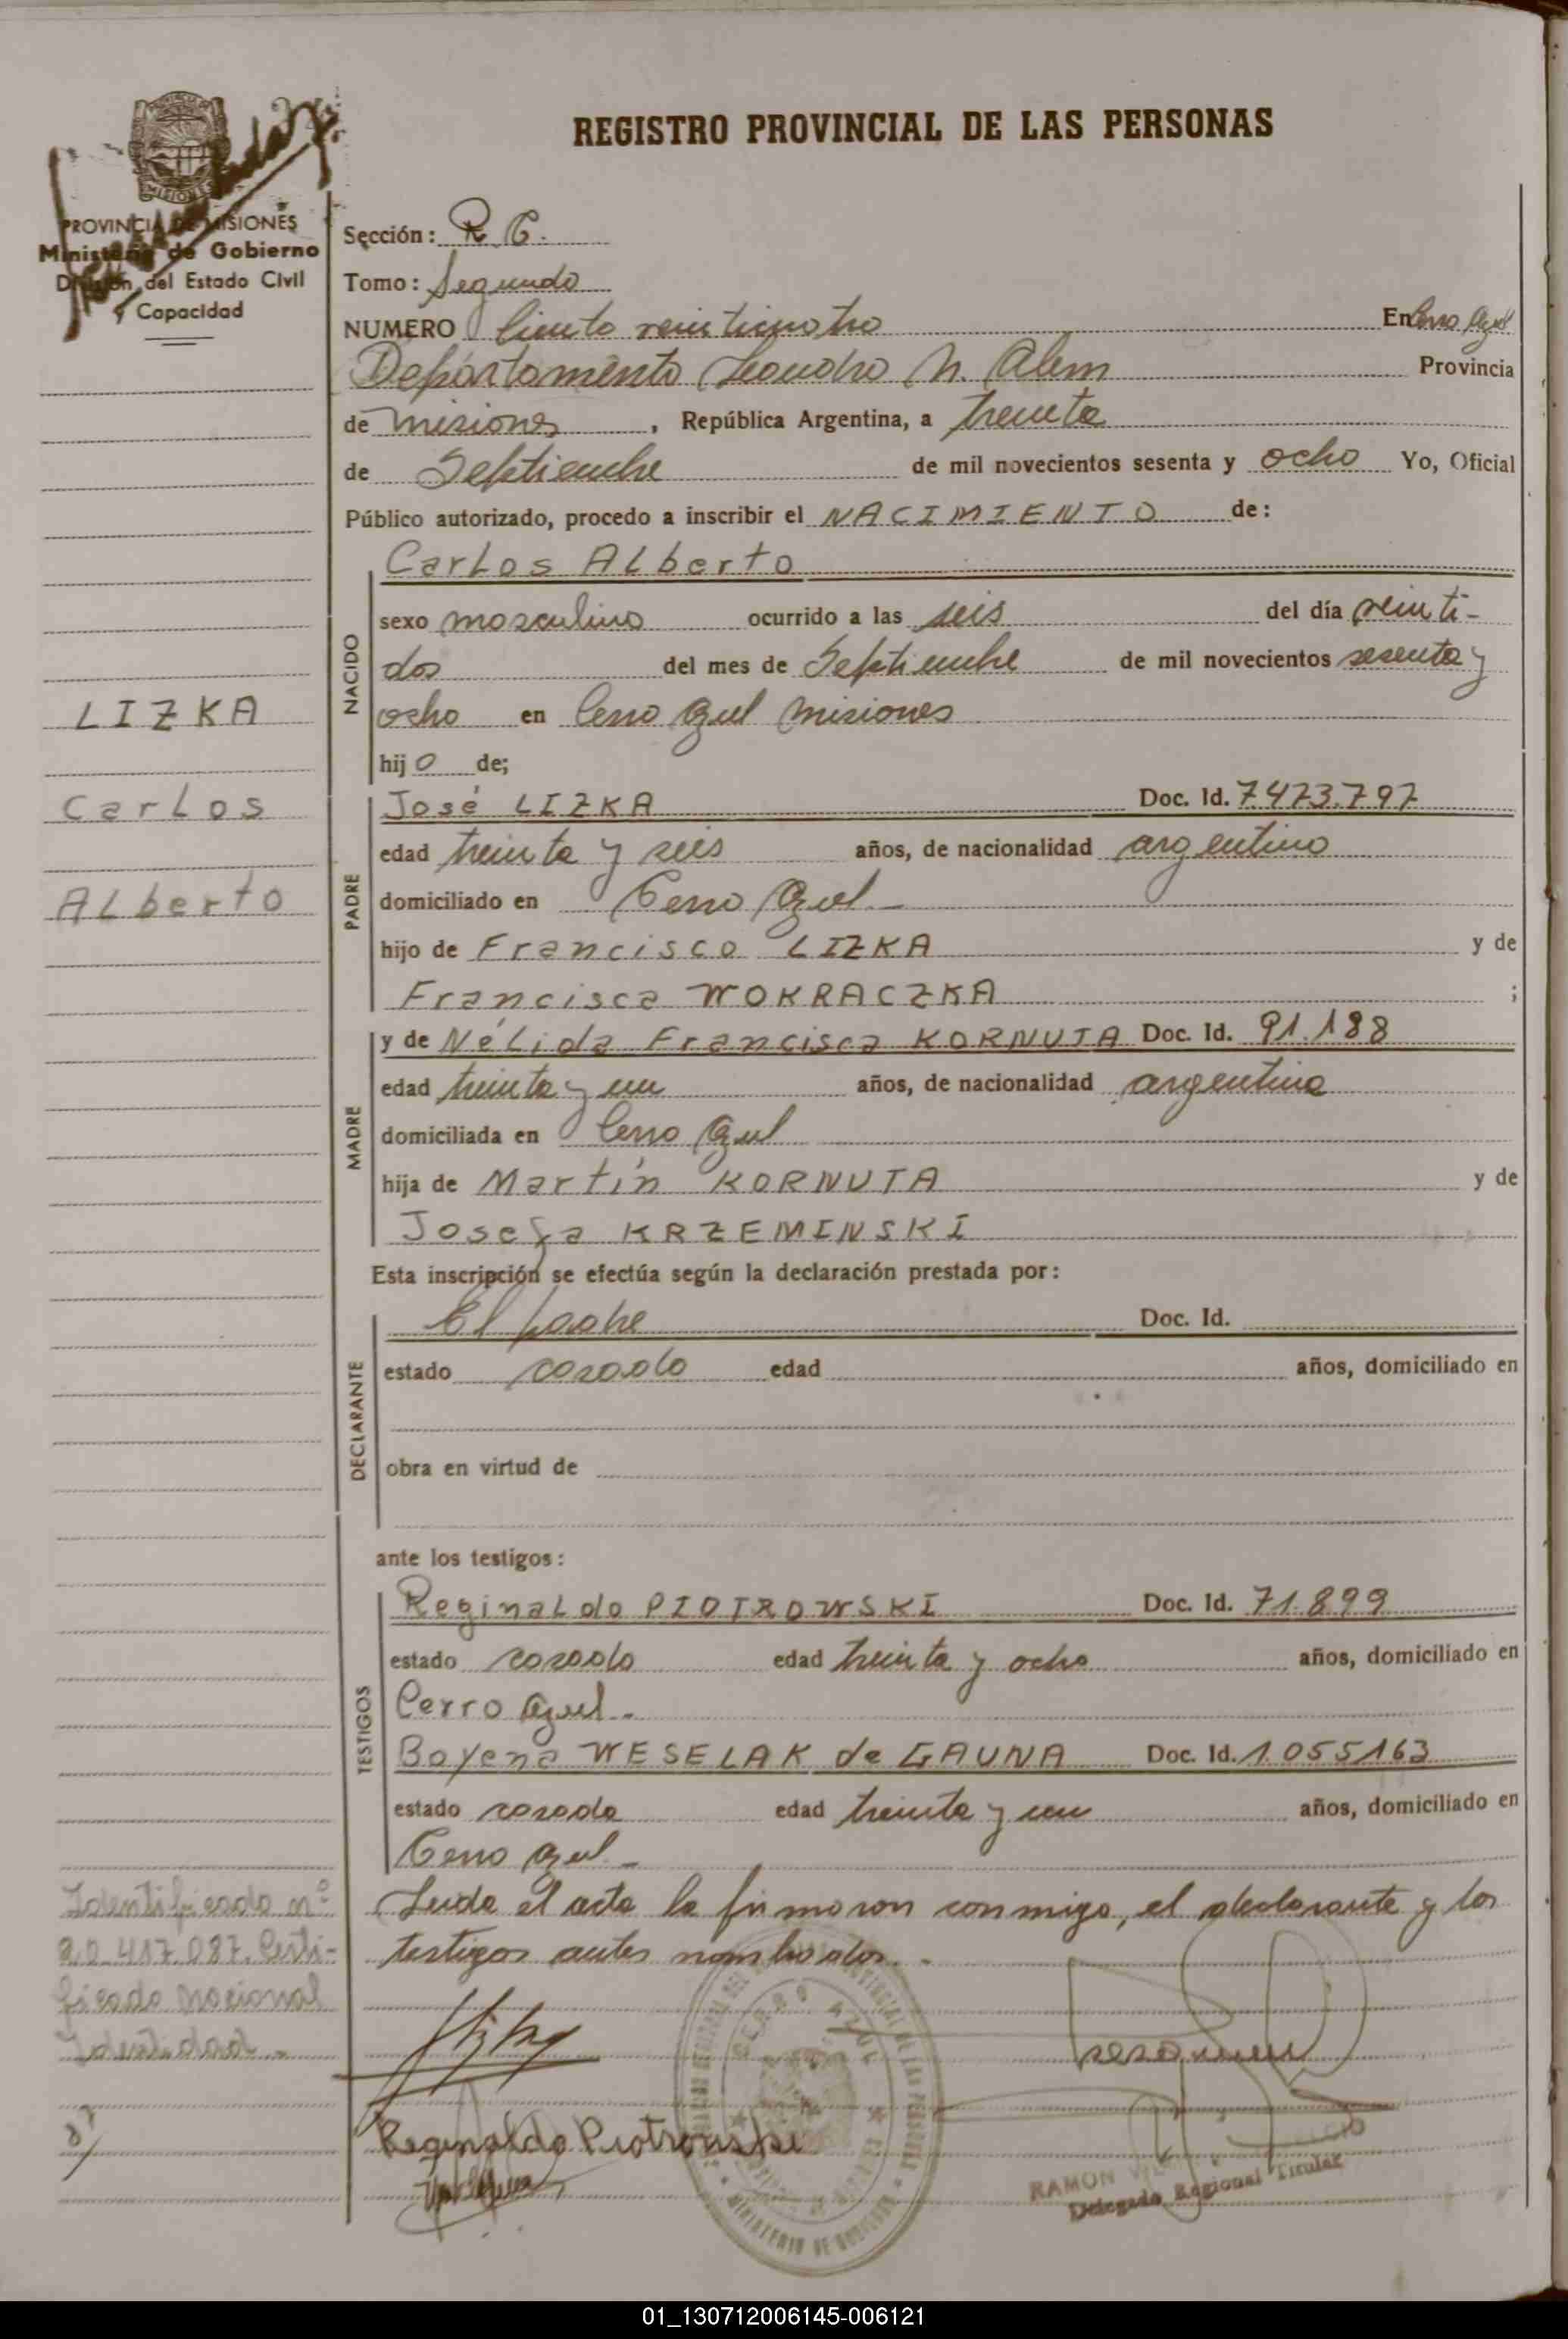 REGISTRO PROVINCIAL DE LAS PERSONAS
MISIONES
PROVINCIA DE MISIONES
Ministerio de Gobierno
División del Estado Civil
y Capacidad
Sección: R. C.
Tomo: Segundo
NUMERO Ciento veinticuatro En Cerro Azul
Departamento Leandro N. Alem Provincia
de misiones, República Argentina, a treinta
de Septiembre de mil novecientos sesenta y ocho Yo, Oficial
Público autorizado, procedo a inscribir el NACIMIENTO de:
NACIDO
Carlos Alberto
sexo masculino ocurrido a las seis del día veinti-
dos del mes de Septiembre de mil novecientos sesenta y
ocho en Cerro Azul Misiones
hijo de;
LIZKA
Carlos
Alberto
PADRE
José LIZKA Doc. Id. 7473.797
edad treinta y seis años, de nacionalidad argentino
domiciliado en Cerro Azul.-
hijo de Francisco LIZKA y de
Francisca WOKRACZKA ;
MADRE
y de Nélida Francisca KORNUTA Doc. Id. 91.188
edad treinta y un años, de nacionalidad argentina
domiciliada en Cerro Azul
hija de Martín KORNUTA y de
Josefa KRZEMINSKI
Esta inscripción se efectúa según la declaración prestada por:
DECLARANTE
El padre Doc. Id.
estado casado edad años, domiciliado en
obra en virtud de
ante los testigos:
TESTIGOS
Reginaldo PIOTROWSKI Doc. Id. 71.899
estado casado edad treinta y ocho años, domiciliado en
Cerro Azul.-
Boyena WESELAK de GAUNA Doc. Id. 1.055163
estado casada edad treinta y un años, domiciliado en
Cerro Azul.-
Leida el acta la firmaron conmigo, el declarante y los
testigos antes nombrados.-
Identificado nº
20.417.087. Certi-
ficado Nacional
Identidad.-
Reginaldo Piotrowski
CERRO AZUL
MINISTERIO DE GOBIERNO
RAMON
Delegado Regional Titular
01_130712006145-006121